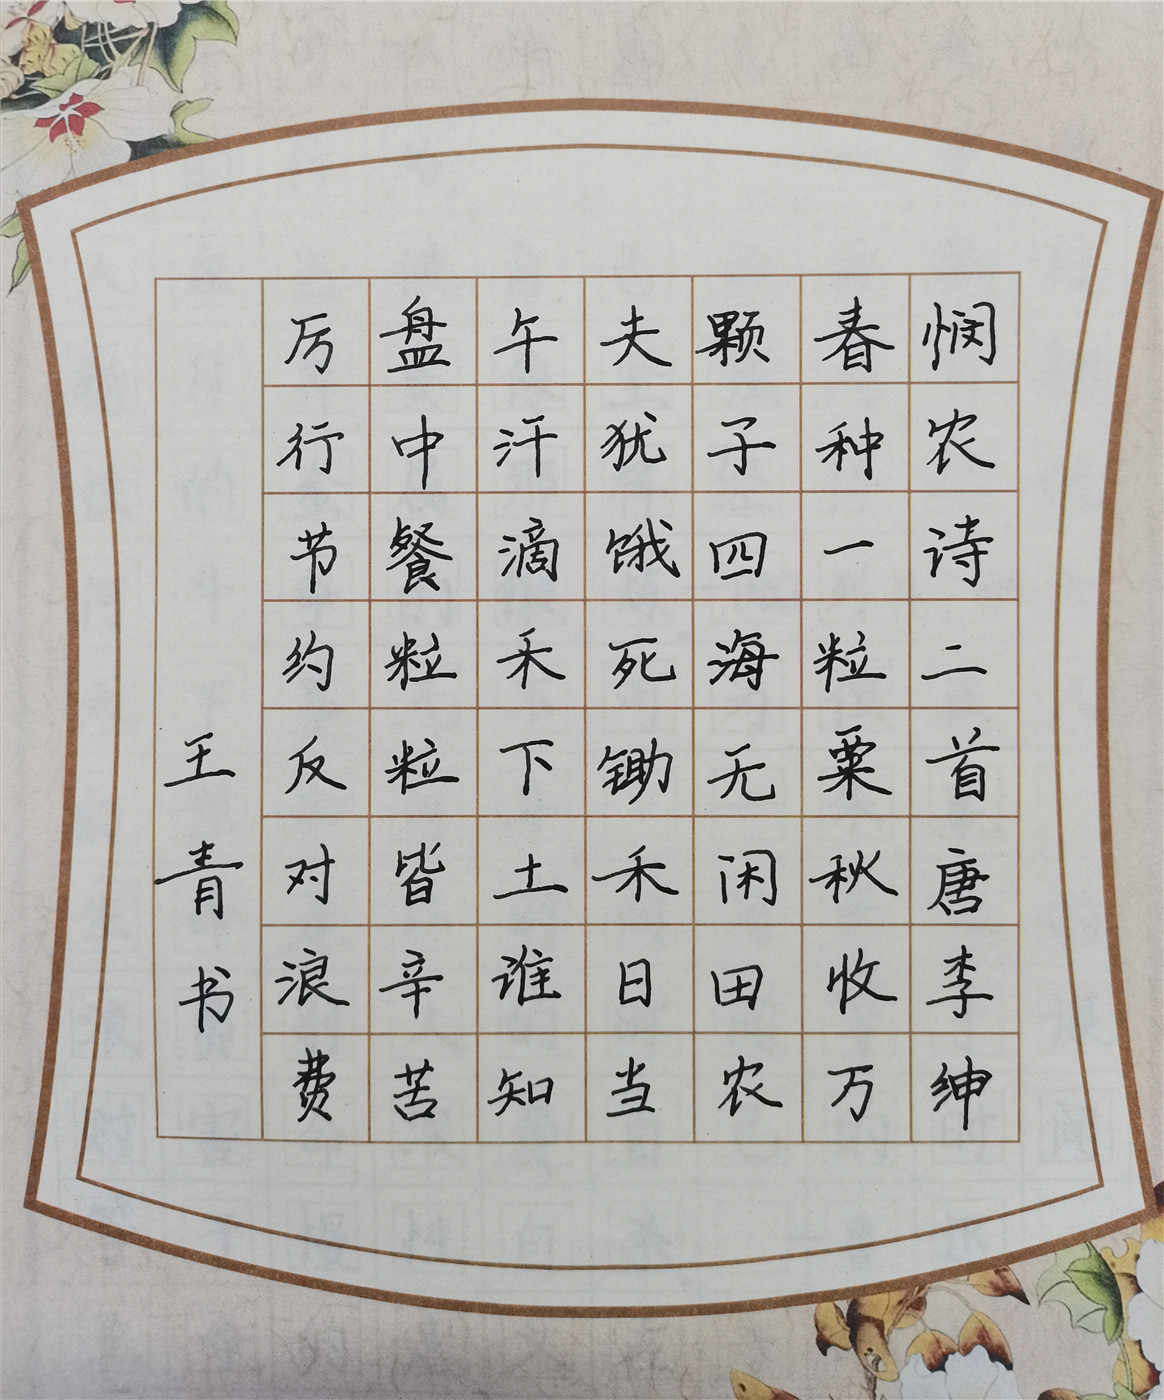 悯农诗二首唐李绅
春种一粒粟秋收万
颗子四海无闲田农
夫犹饿死锄禾日当
午汗滴禾下土谁知
盘中餐粒粒皆辛苦
厉行节约反对浪费
王青书